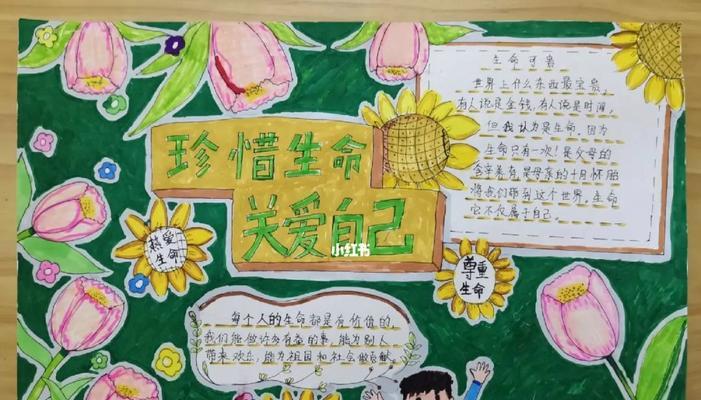 珍惜生命
关爱自己
小红书
生命可贵
世界上什么东西最宝贵,
有人说是金钱,有人说是时间,
但我认为是生命。因为
生命只有一次!是父母的
含辛茹苦是母亲的十月怀胎
将我们带到这个世界。生命
它不仅属于自己。
热爱
生命
尊重
生命
每个人的生命都是有价值的,
我们能做许多有益的事,能为别人
带来欢乐,能为祖国和社会做贡献